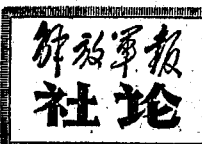 解放军报
社论